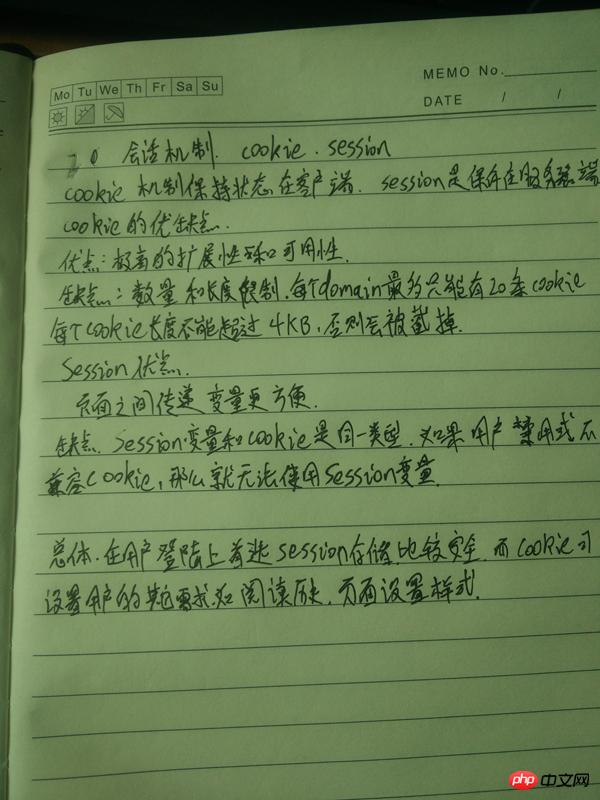 Mo Tu We Th Fr Sa Su
MEMO No.
DATE / /
会话机制. cookie. session
cookie 机制保持状态在客户端. session是保存在服务器端
cookie的优缺点.
优点:极高的扩展性和可用性.
缺点:数量和长度限制.每个domain最多只能有20条cookie
每个cookie长度不能超过4KB,否则会被截掉.
Session优点.
页面之间传递变量更方便.
缺点. Session变量和cookie是同一类型.如果用户禁用或不
兼容Cookie,那么就无法使用Session变量.
总体.在用户登陆上首选session存储.比较安全.而cookie可
设置用户的其它需求如阅读历史.页面设置样式.
php 中文网